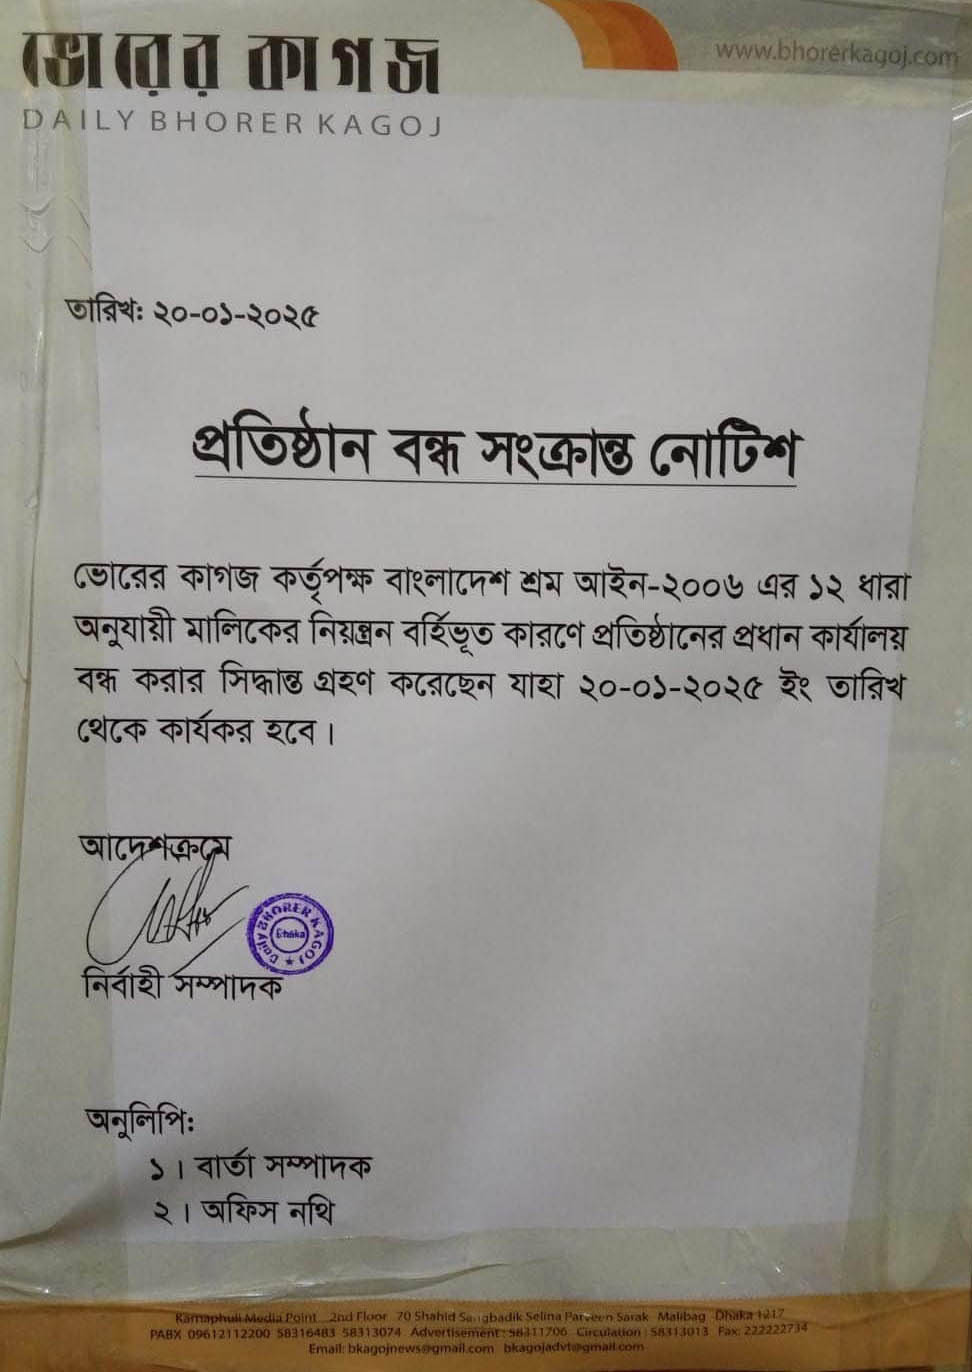 ভোরের কাগজ
DAILY BHORER KAGOJ
www.bhorerkagoj.com
তারিখ: ২০-০১-২০২৫
প্রতিষ্ঠান বন্ধ সংক্রান্ত নোটিশ
ভোরের কাগজ কর্তৃপক্ষ বাংলাদেশ শ্রম আইন-২০০৬ এর ১২ ধারা
অনুযায়ী মালিকের নিয়ন্ত্রন বর্হিভূত কারণে প্রতিষ্ঠানের প্রধান কার্যালয়
বন্ধ করার সিদ্ধান্ত গ্রহণ করেছেন যাহা ২০-০১-২০২৫ ইং তারিখ
থেকে কার্যকর হবে।
আদেশক্রমে
Daily BHORER KAGOJ
Dhaka
নির্বাহী সম্পাদক
অনুলিপি:
১। বার্তা সম্পাদক
২। অফিস নথি
Karnaphuli Media Point 2nd Floor 70 Shahid Sangbadik Selina Parveen Sarak Malibag Dhaka 1217
PABX 09612112200 58316483 58313074 Advertisement : 58311706 Circulation : 58313013 Fax: 222222734
Email: bkagojnews@gmail.com bkagojadvt@gmail.com